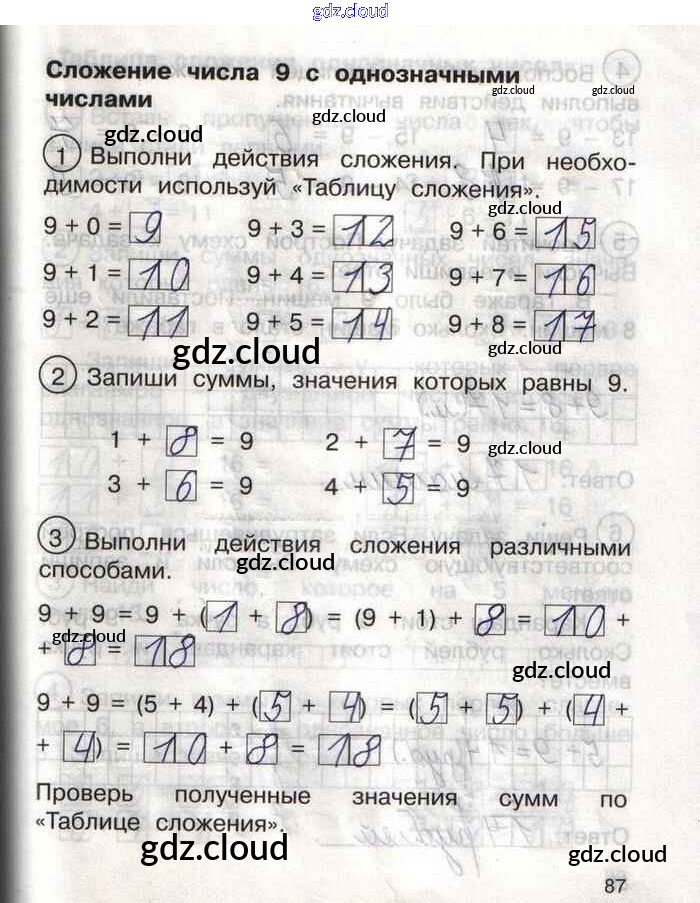 gdz.cloud
Сложение числа 9 с однозначными
числами
gdz.cloud
gdz.cloud
gdz.cloud
gdz.cloud
1 Выполни действия сложения. При необхо-
димости используй «Таблицу сложения».
gdz.cloud
9 + 0 = 9 9 + 3 = 12 9 + 6 = 15
9 + 1 = 10 9 + 4 = 13 9 + 7 = 16
9 + 2 = 11 9 + 5 = 14 9 + 8 = 17
gdz.cloud
gdz.cloud
2 Запиши суммы, значения которых равны 9.
1 + 8 = 9 2 + 7 = 9
gdz.cloud
3 + 6 = 9 4 + 5 = 9
3 Выполни действия сложения различными
способами.
gdz.cloud
9 + 9 = 9 + (1 + 8) = (9 + 1) + 8 = 10 +
gdz.cloud
+ 8 = 18
gdz.cloud
9 + 9 = (5 + 4) + (5 + 4) = (5 + 5) + (4 +
+ 4) = 10 + 8 = 18
Проверь полученные значения сумм по
«Таблице сложения».
gdz.cloud
gdz.cloud
gdz.cloud
87